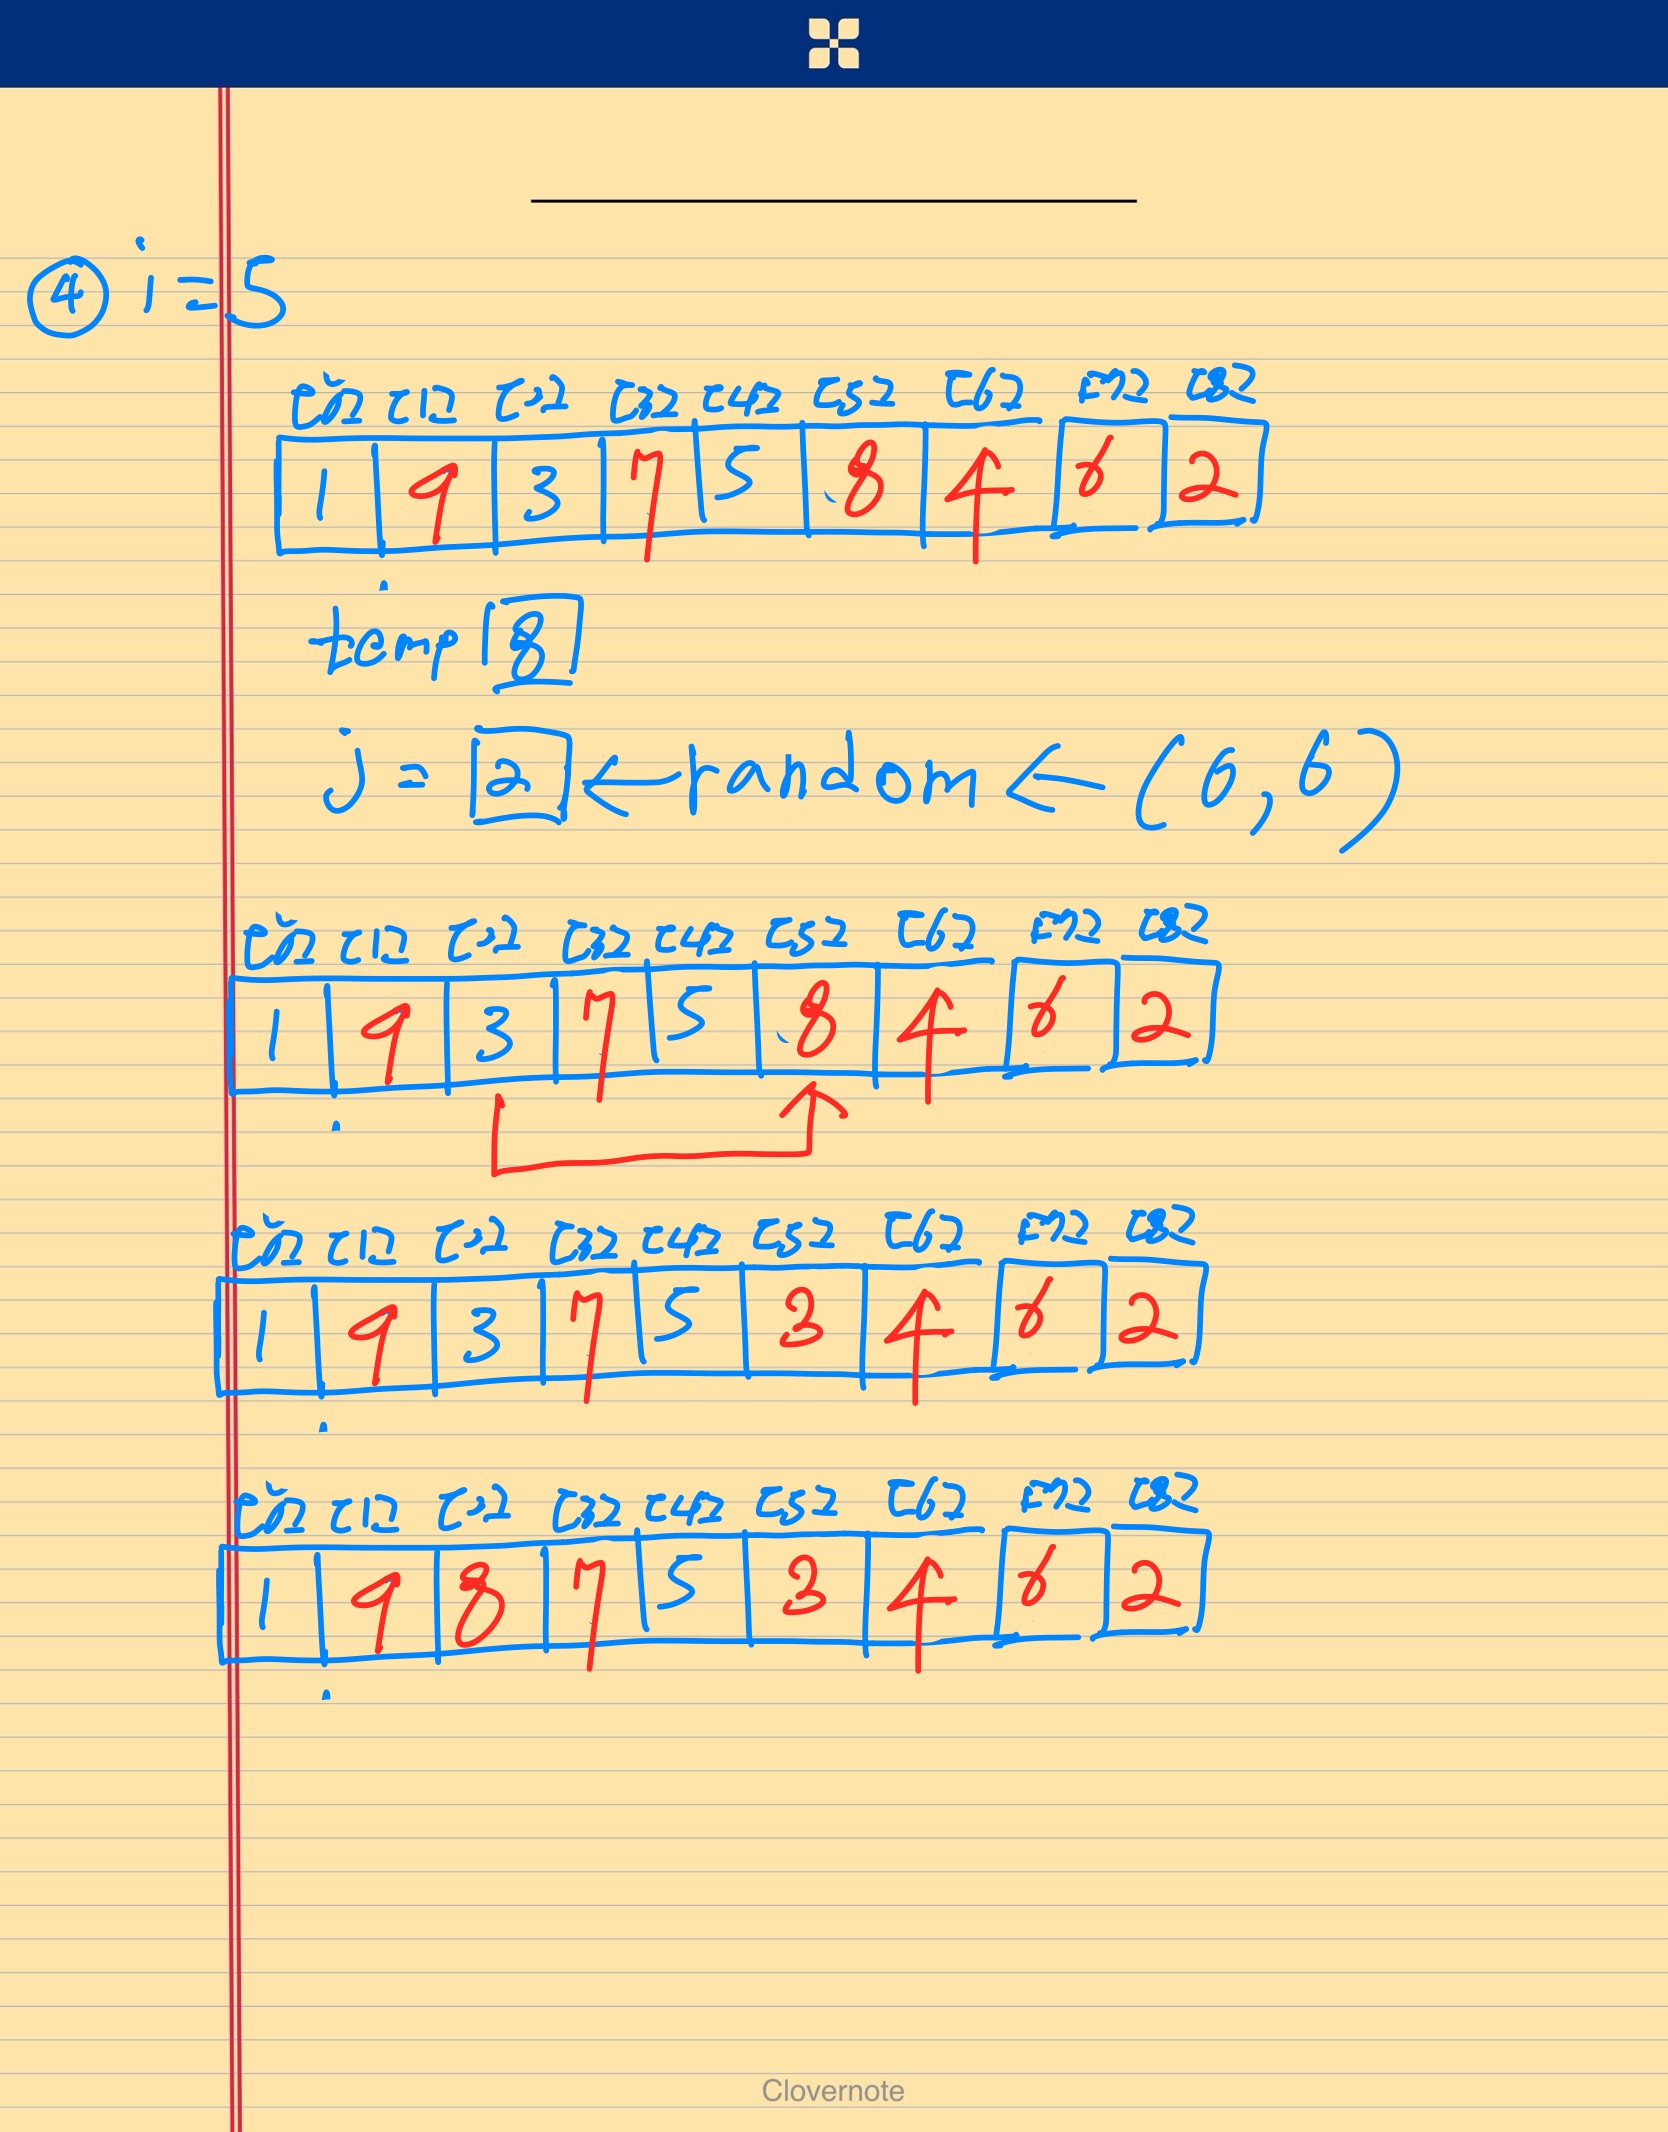 ④ i = 5
[0] [1] [2] [3] [4] [5] [6] [7] [8]
1 9 3 7 5 8 4 6 2
temp 8
j = 2 ← random ← (0, 6)
[0] [1] [2] [3] [4] [5] [6] [7] [8]
1 9 3 7 5 8 4 6 2
[0] [1] [2] [3] [4] [5] [6] [7] [8]
1 9 3 7 5 3 4 6 2
[0] [1] [2] [3] [4] [5] [6] [7] [8]
1 9 8 7 5 3 4 6 2
Clovernote